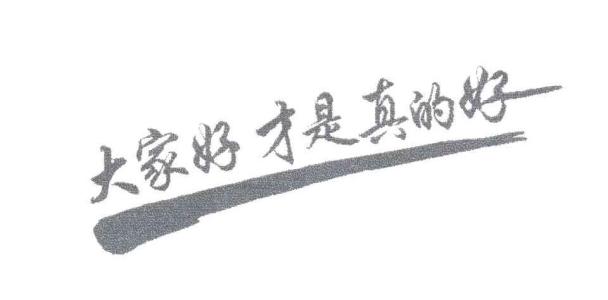 大家好 才是真的好